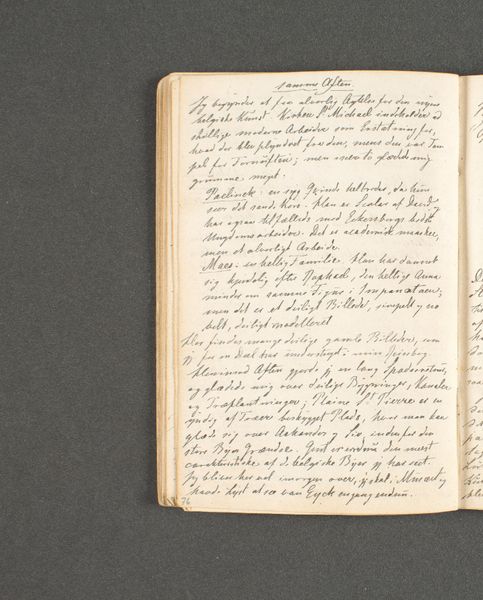 samme Aften.
Jeg begynder at faa alvorlig Agtelse for den nyere
belgiske Kunst. Kirken St Michael indeholder ad
skillige moderne Arbeider som Erstatning for,
hvad der blev plyndret fra den, mens den var Tem
pel for Fornuften; men især to glædede mig
grumme meget.
Paelinck: en syg Qvinde helbredes, da hun
seer det sande Kors. Han er Scolar af David,
har noget tilfælleds med Eckersbergs bedste
Ungdomsarbeider. Det er academisk maaskee,
men et alvorligt Arbeide.
Maes: en hellig Familie. Han har dannet
sig kjendelig efter Raphael, den hellige Anna
minder om samme Figur i Impannataen;
men det er et deiligt Billede, simpelt og no
belt, deiligt modelleret.
Her findes mange deilige gamle Billeder, som
jeg for en Deel har undersøgt i min Reisebog
Aften gjorde jeg en lang Spadseretour,
og glædede mig over deilige Bygninger, Kanaler
og Træplantninger; Plaine St Pierre er en
yndig af Træer beskygget Plads, hvor man kan
glæde sig over Aakander og Siv, indenfor den
store Byes Grændse. Gent er endnu den meest
caracteristiske af de belgiske Byer jeg har seet.
Jeg bliver her vel imorgen over, jeg skal i Museet og
havde Lyst at see van Eyck engang endnu.
76